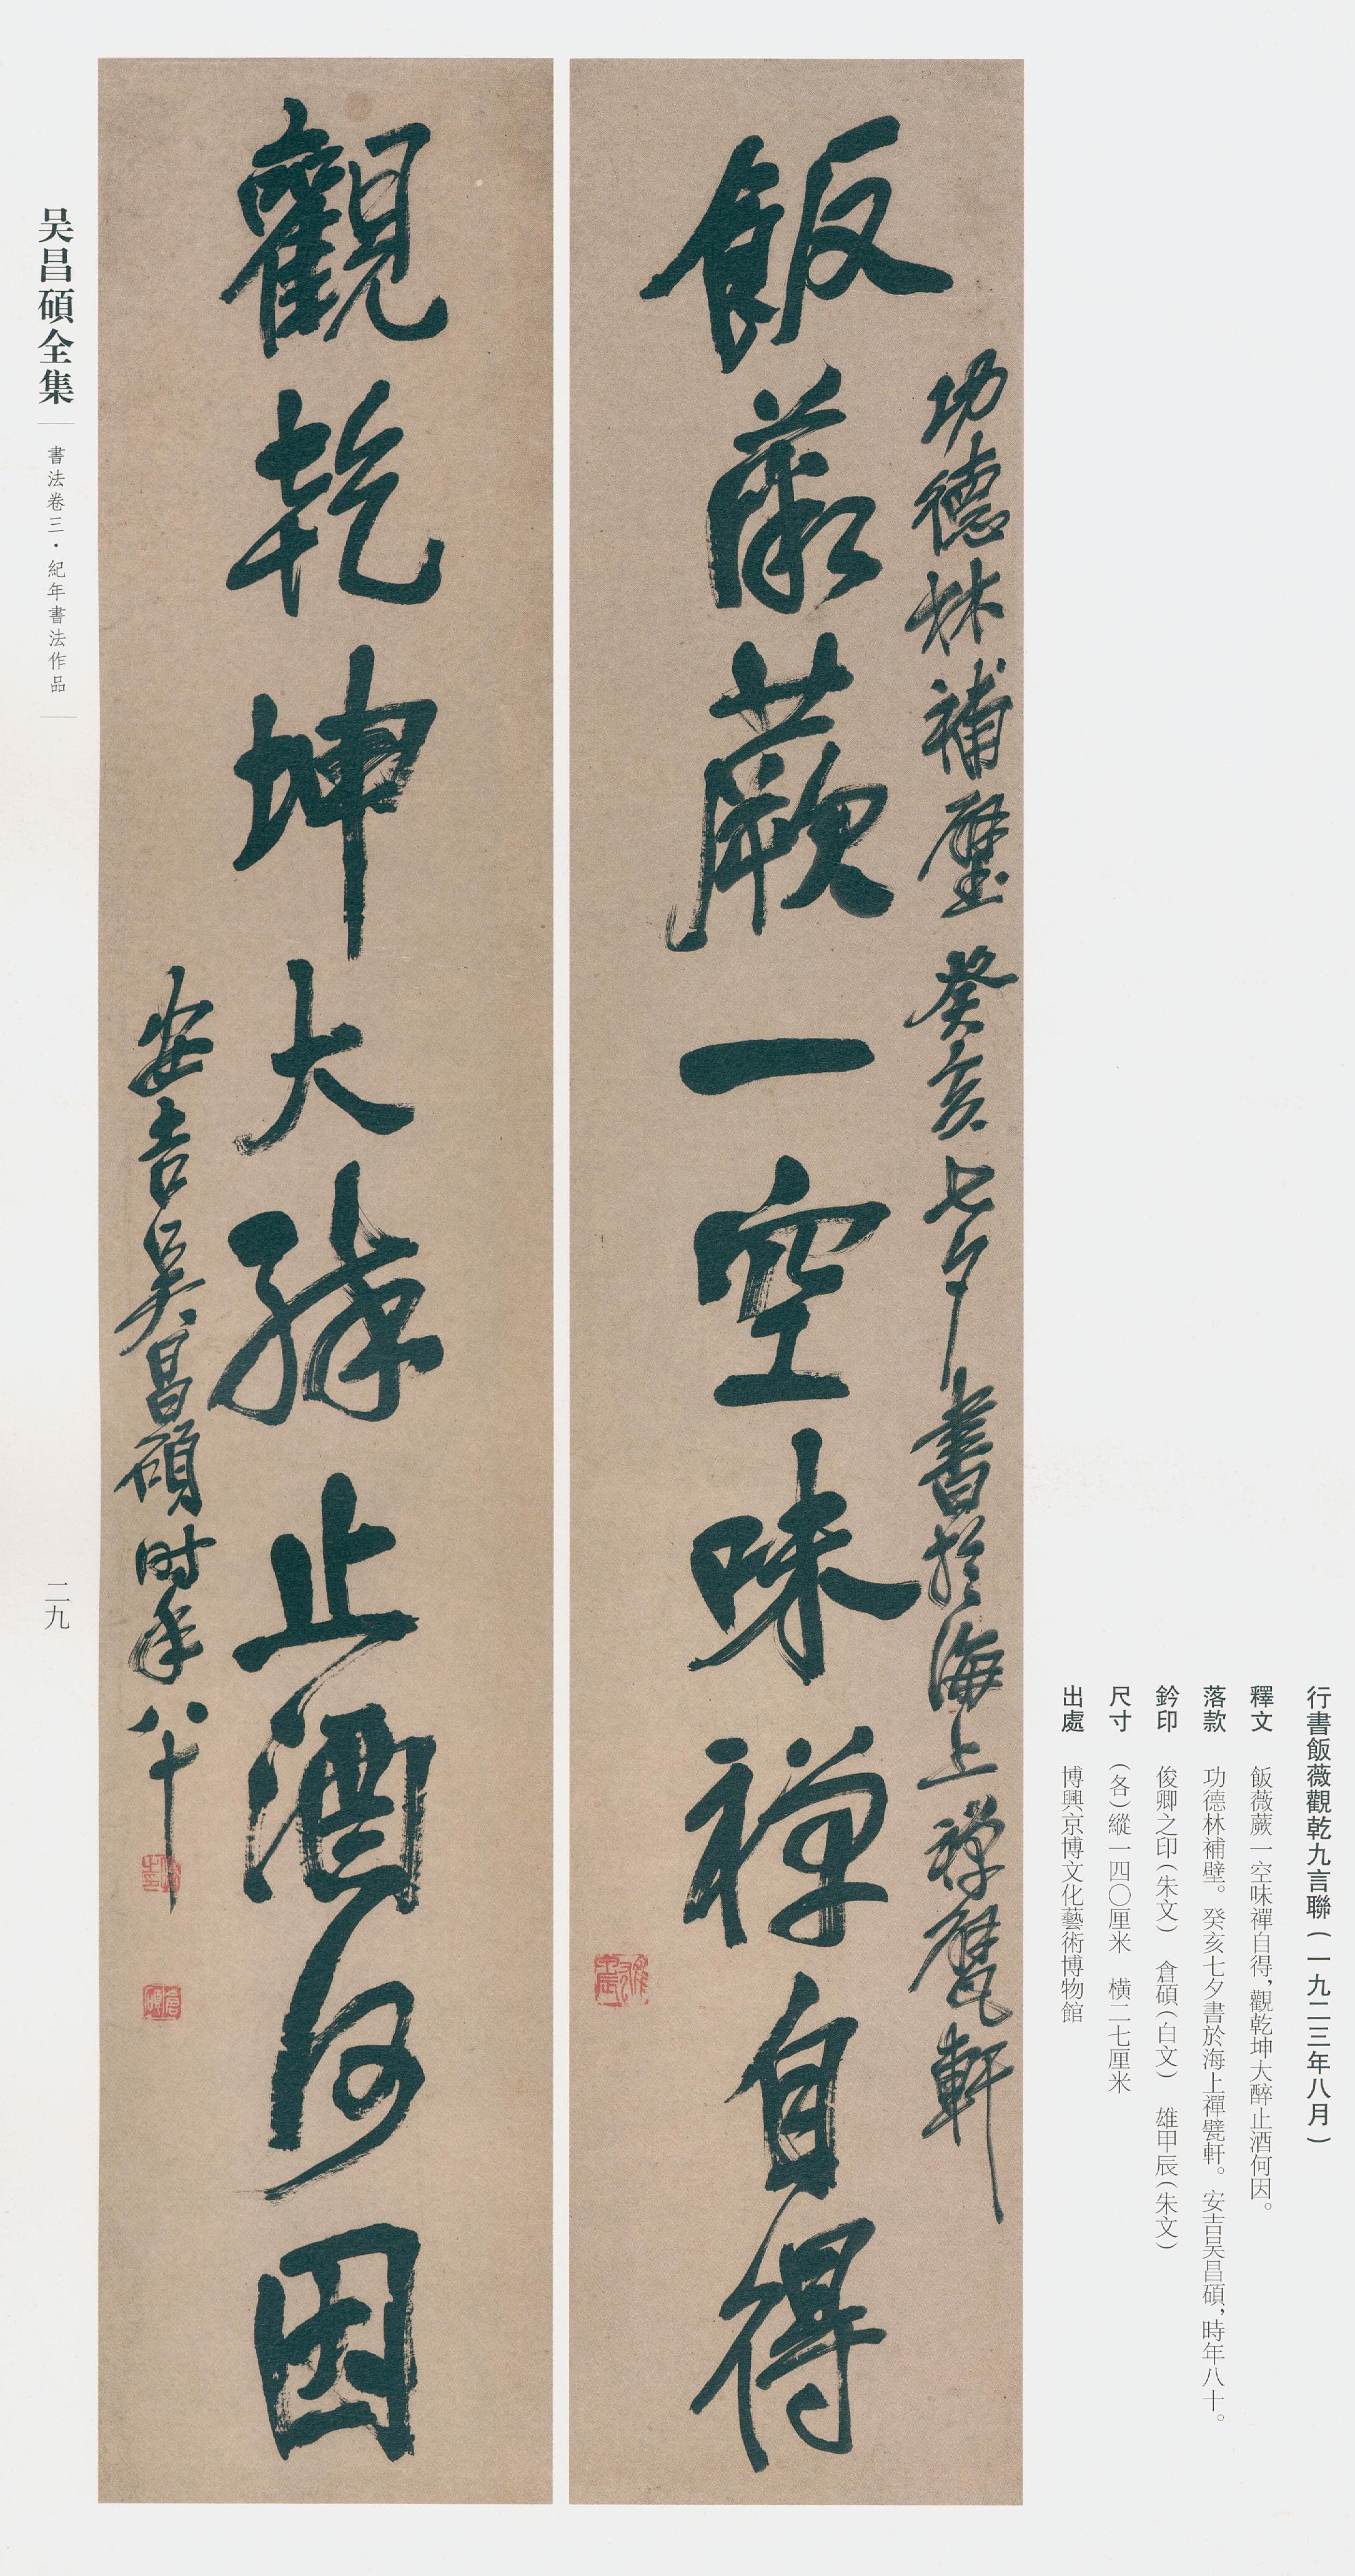 行書飯薇觀乾九言聯(一九二三年八月)
釋文　飯薇蕨一空味禪自得，觀乾坤大醉止酒何因。
落款　功德林補壁。癸亥七夕書於海上禪甓軒。安吉吴昌碩，時年八十。
鈐印　俊卿之印(朱文)　倉碩(白文)　雄甲辰(朱文)
尺寸　(各)縱一四〇厘米　橫二七厘米
出處　博興京博文化藝術博物館
功德林補壁癸亥七夕書於海上禪甓軒
飯薇蕨一空味禪自得
觀乾坤大醉止酒何因
安吉吴昌碩时年八十
倉碩
吴昌碩全集
書法卷三·紀年書法作品
二九